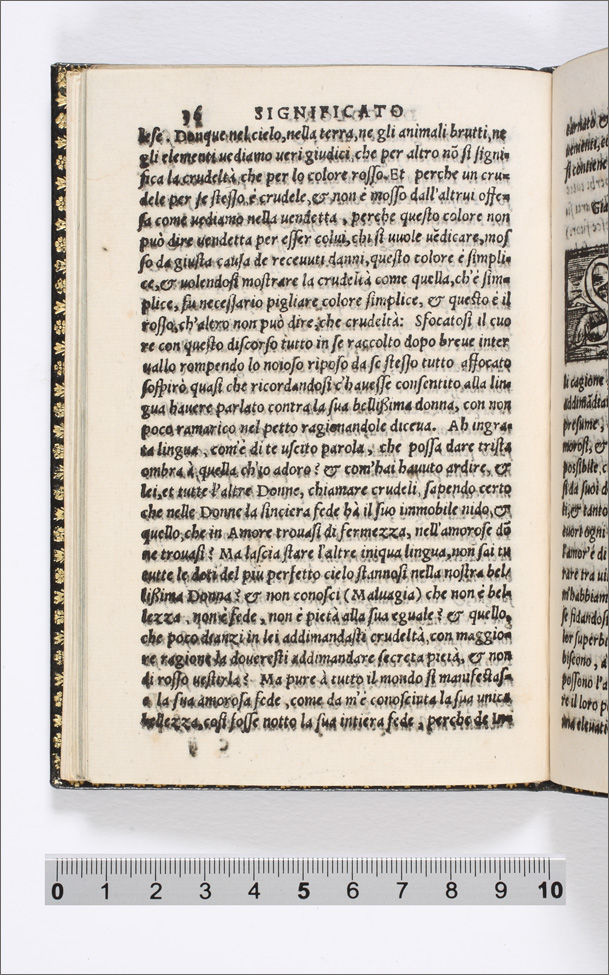 36 SIGNIFICATO
lese. Donque nel cielo, nella terra, ne gli animali brutti, ne
gli elementi uediamo ueri giudici, che per altro nõ si signi-
fica la crudeltà, che per lo colore rosso. Et perche un cru-
dele per se stesso è crudele, & non è mosso dall'altrui offe-
sa come uediamo nella uendetta, perche questo colore non
può dire uendetta per esser colui, chi si uuole uẽdicare, mos
so da giusta causa de receuuti danni, questo colore è simpli-
ce, & uolendosi mostrare la crudeltà come quella, ch'è sim-
plice, fu necessario pigliare colore simplice, & questo è il
rosso, ch'altro non può dire, che crudeltà: Sfocatosi il cuo
re con questo discorso tutto in se raccolto dopo breue inter
uallo rompendo lo noioso riposo da se stesso tutto affocato
sospirò, quasi che ricordandosi c'hauesse consentito alla lin
gua hauere parlato contra la sua bellißima donna, con non
poco ramarico nel petto ragionandole diceua. Ah ingra-
ta lingua, com'è di te uscito parola, che possa dare trista
ombra à quella ch'io adoro? & com'hai hauuto ardire, &
lei, et tutte l'altre Donne, chiamare crudeli, sapendo certo
che nelle Donne la sinciera fede hà il suo immobile nido, &
quello, che in Amore trouasi di fermezza, nell'amorose dõ
ne trouasi? Ma lascia stare l'altre iniqua lingua, non sai tu
tutte le doti del piu perfetto cielo stannosi nella nostra bel-
lißima Donna? & non conosci (Maluagia) che non è bel-
lezza, non è fede, non è pietà alla sua eguale? & quello,
che poco dianzi in lei addimandasti crudeltà, con maggio-
re ragione la doueresti addimandare secreta pietà, & non
di rosso uestirla? Ma pure à tutto il mondo si manifestas-
e la sua amorosa fede, come da m'è conosciuta la sua unica
bellezza, così fosse notto la sua intiera fede, perche de
C
gemenți, et
si contiene
Gia
li cagione
addimãdai
presume,
morosi, &
possibile c
si da suoi d
li, & tanto
cuori ogni
l'amor'è di
rare tra ui
m'habbiam
se fidandosi
lor superbi
biscono, a
possono l'a
re il loro p
ma eleuati
0 1 2 3 4 5 6 7 8 9 10